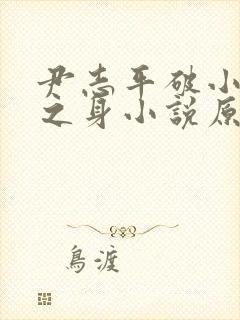 尹志平破小
之身小說原
鳥渡